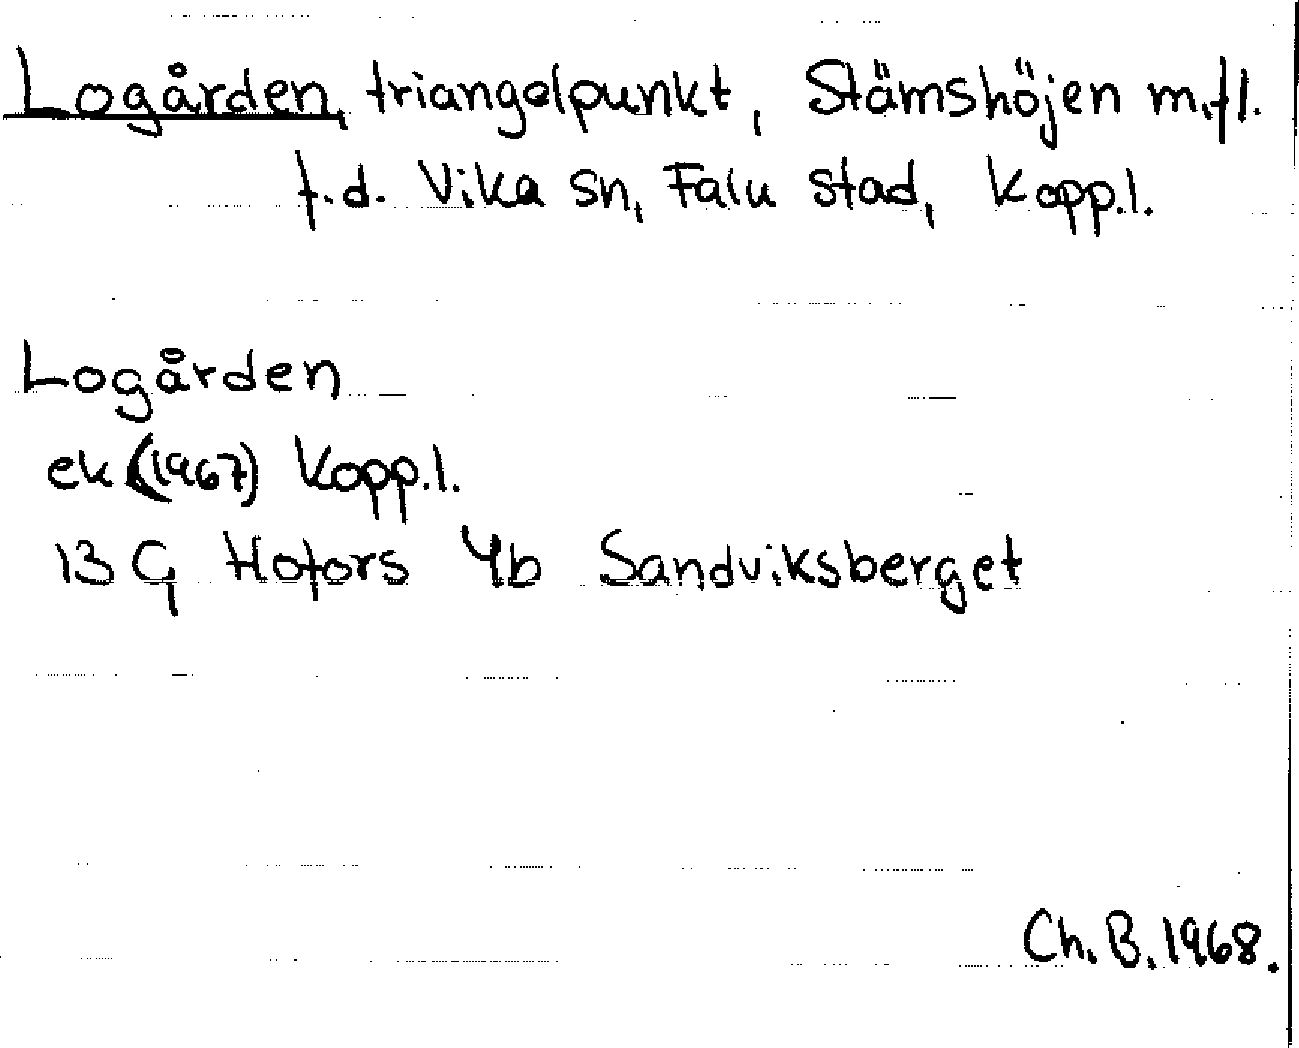 Logården, triangelpunkt, Stämshöjen m.fl.
f.d. Vika sn, Falu stad, Kopp.l.
Logården
ek (1967) Kopp.l.
13 G Hofors 4b Sandviksberget
Ch. B. 1968.